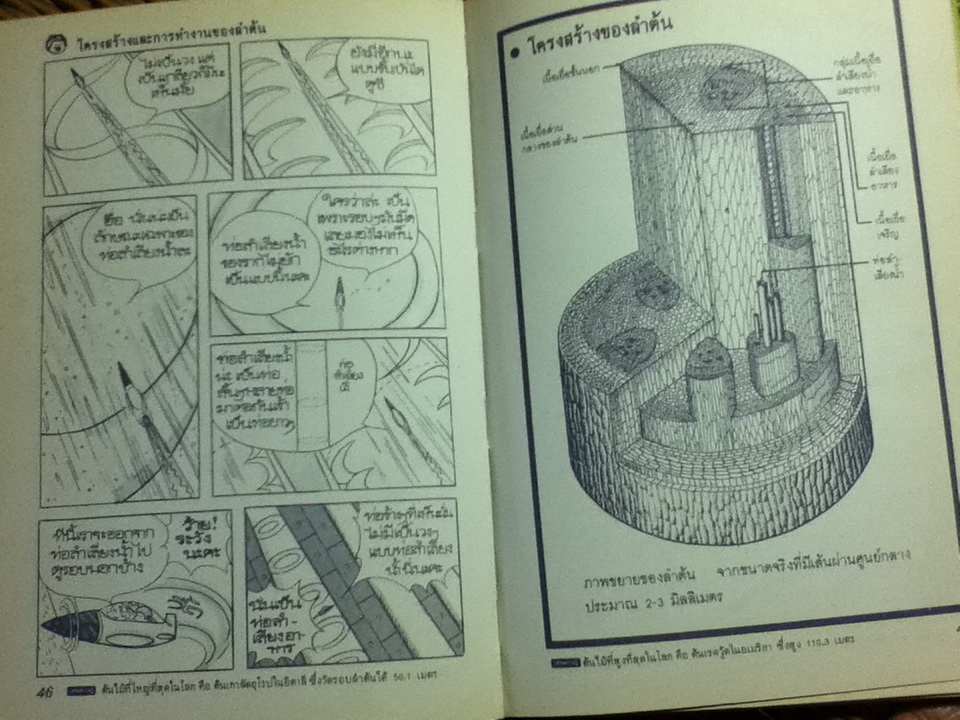 โครงสร้างและการทำงานของลำต้น
ไม่เป็นวง แต่
เป็นเกลียวก็มีนะ
เห็นมั้ย
ยังมีอีกนะ
แบบขั้นบันได
ดูซิ
อือ นั่นน่ะเป็น
ลักษณะเฉพาะของ
ท่อลำเลียงน้ำล่ะ
ท่อลำเลียงน้ำ
ของรากไม่ยัก
เป็นแบบนี้นะคะ
ใครว่าล่ะ เป็น
เพราะรอบๆมันมืด
เลยมองไม่เห็น
ท่อลำเลียงน้ำ
น่ะ เป็นท่อ
สั้นๆหลายท่อ
มาต่อกันเข้า
เป็นท่อยาวๆ
ทีนี้เราจะออกจาก
ท่อลำเลียงน้ำไป
ดูรอบนอกบ้าง
ว้าย!
ระวัง
นะคะ
ท่อข้างๆที่เห็นนั่น
ไม่มีเป็นวงๆ
แบบท่อลำเลียง
น้ำนี่นะคะ
นั่นเป็น
ท่อลำ-
เลียงอา-
หาร
46
ต้นไม้ที่ใหญ่ที่สุดในโลก คือ ต้นเกาลัดยุโรปในอิตาลี ซึ่งวัดรอบลำต้นได้ 58.1 เมตร
● โครงสร้างของลำต้น
เนื้อเยื่อชั้นนอก
เนื้อเยื่อส่วน
กลางของลำต้น
กลุ่มเนื้อเยื่อ
ลำเลียงน้ำ
และอาหาร
เนื้อเยื่อ
ลำเลียง
อาหาร
เนื้อเยื่อ
เจริญ
ท่อลำ-
เลียงน้ำ
ภาพขยายของลำต้น จากขนาดจริงที่มีเส้นผ่านศูนย์กลาง
ประมาณ 2-3 มิลลิเมตร
ต้นไม้ที่สูงที่สุดในโลก คือ ต้นเรดวู้ดในอเมริกา ซึ่งสูง เมตร